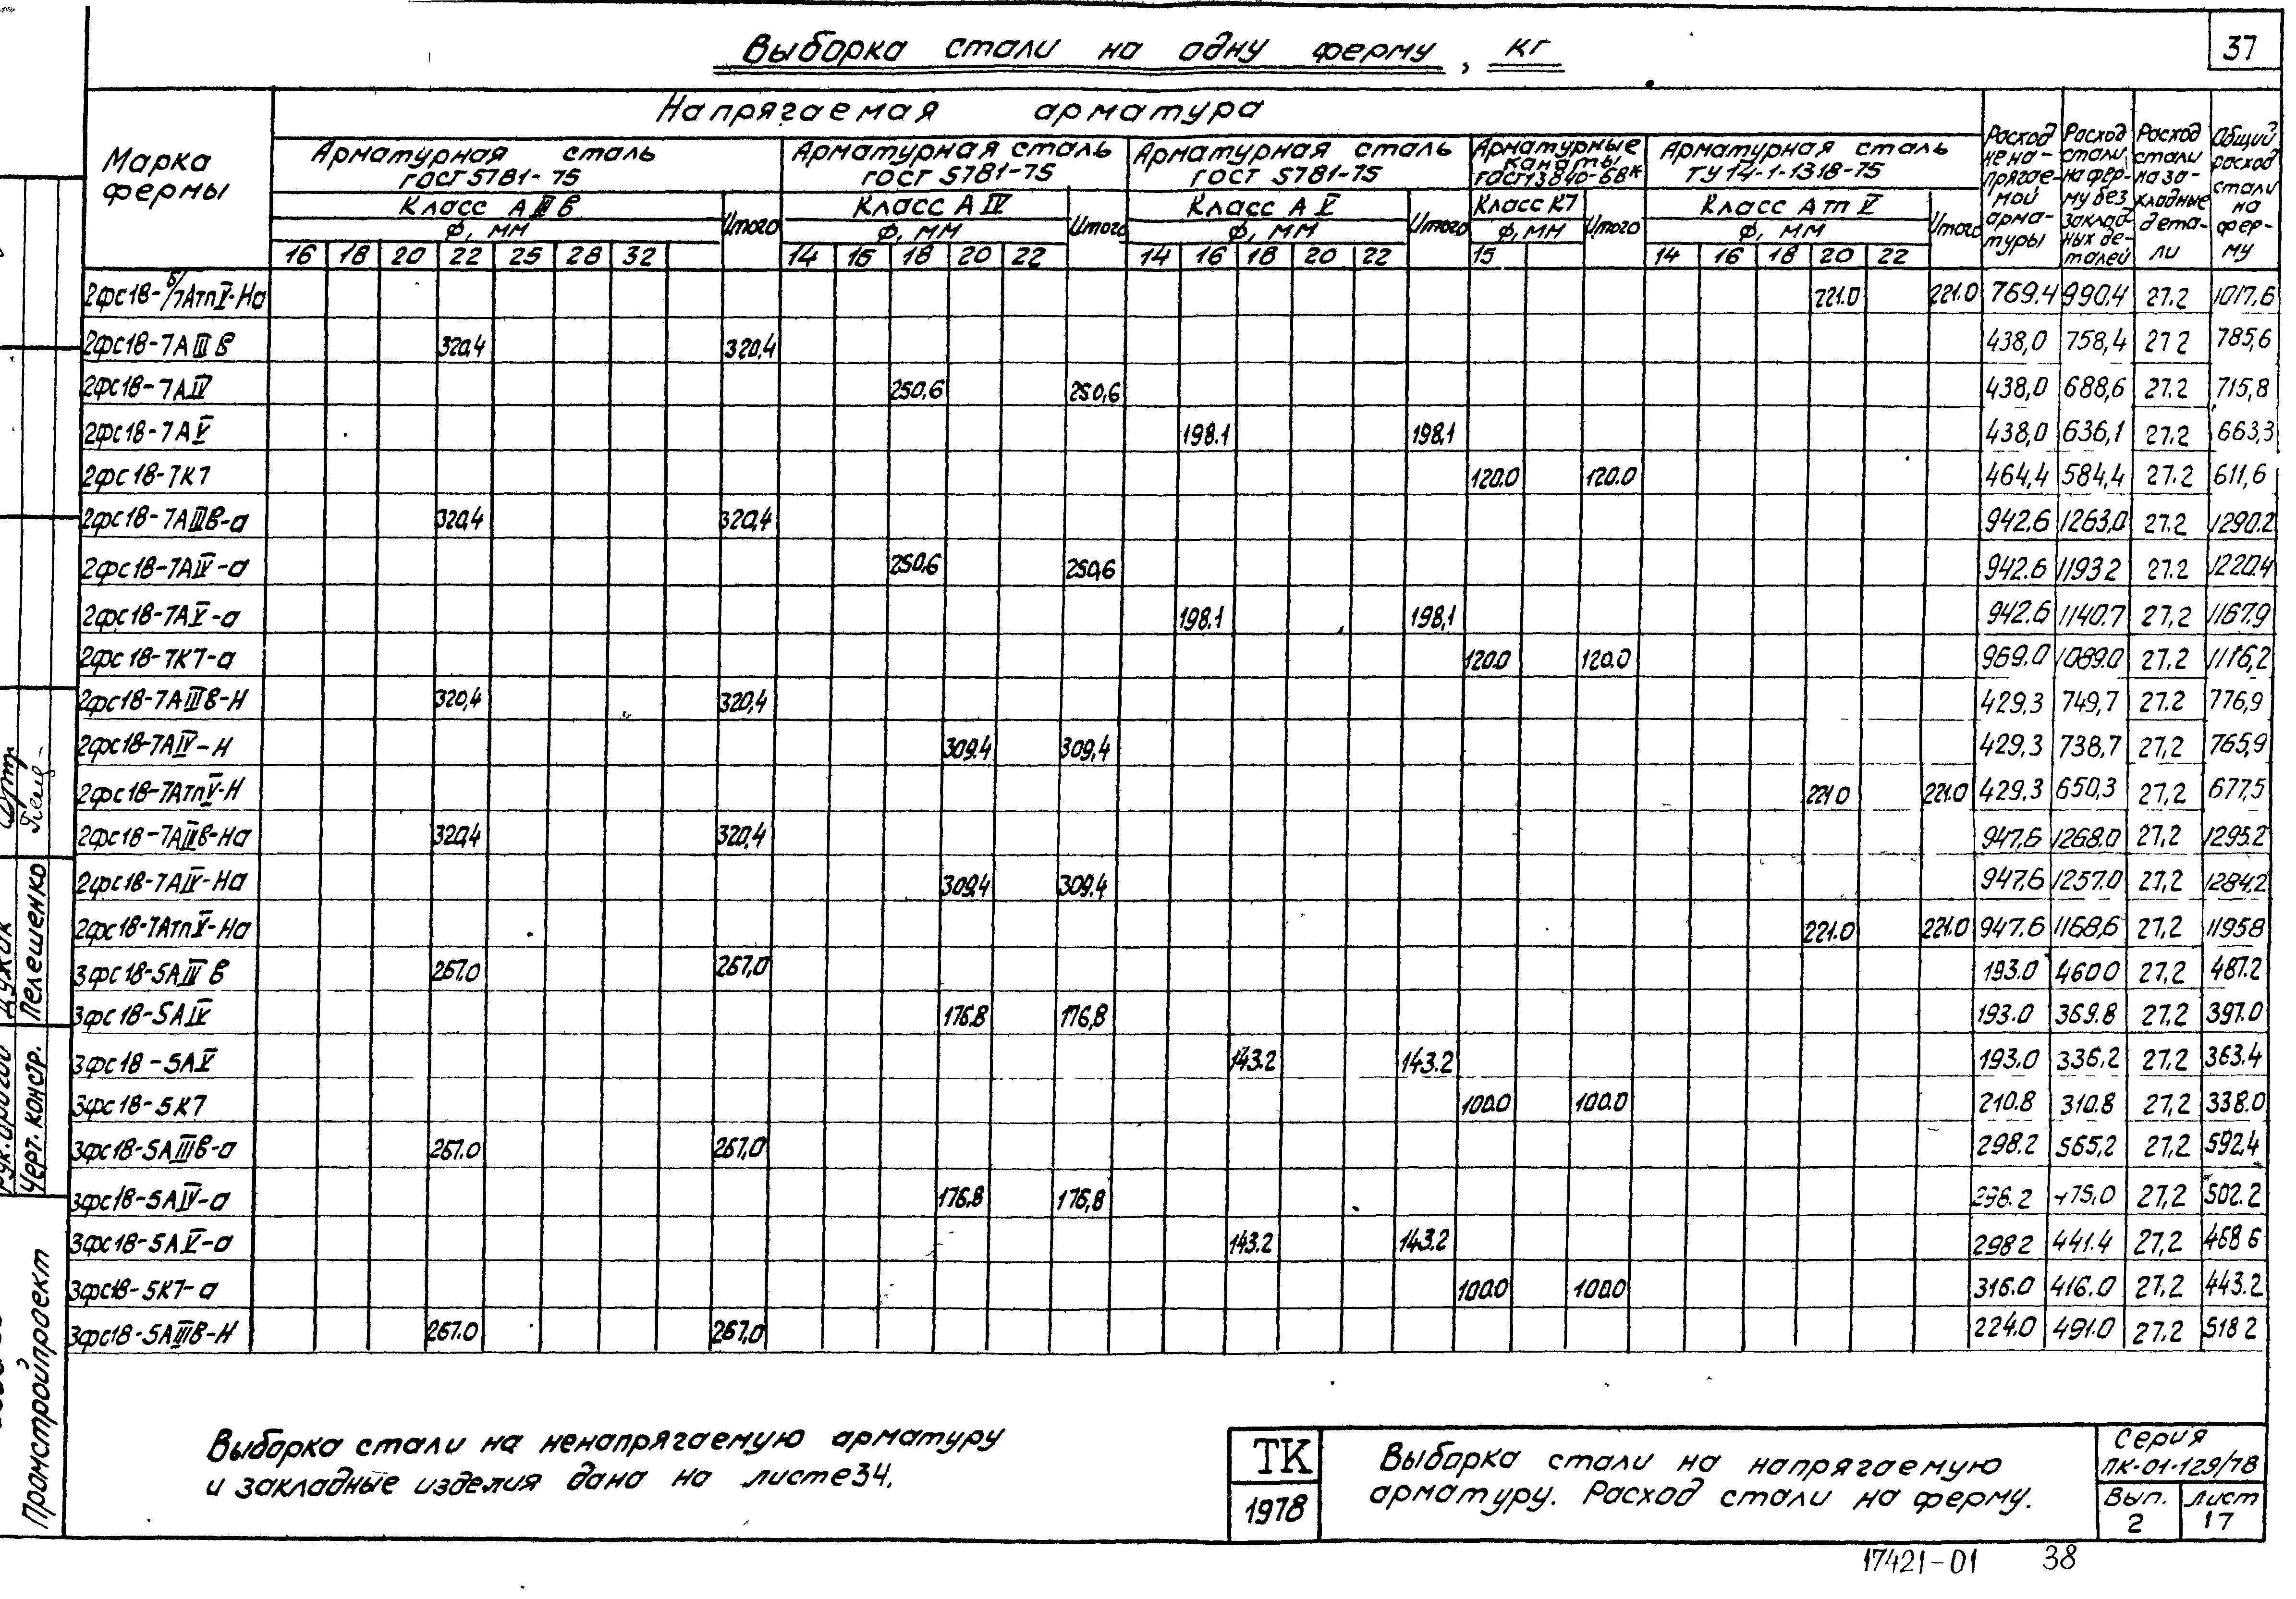 37
Выборка стали на одну ферму, кг
Марка фермы
Напрягаемая арматура
Арматурная сталь ГОСТ 5781-75
Класс А III в
Ф, мм
16 18 20 22 25 28 32
Итого
Арматурная сталь ГОСТ 5781-75
Класс А IV
Ф, мм
14 16 18 20 22
Итого
Арматурная сталь ГОСТ 5781-75
Класс А V
Ф, мм
14 16 18 20 22
Итого
Арматурные канаты ГОСТ 13840-68*
Класс К7
Ф, мм
15
Итого
Арматурная сталь ТУ 14-1-1318-75
Класс Атп V
Ф, мм
14 16 18 20 22
Итого
Расход ненапрягаемой арматуры
Расход стали на ферму без закладных деталей
Расход стали на закладные детали
Общий расход стали на ферму
2фс18-6/7АтпV-На 221.0 221.0 769.4 990,4 27.2 1017,6
2фс18-7АIIIв 320,4 320,4 438,0 758,4 27 2 785,6
2фс18-7АIV 250,6 250,6 438,0 688,6 27.2 715,8
2фс18-7АV 198.1 198,1 438,0 636,1 27.2 663,3
2фс18-7К7 120.0 120.0 464,4 584,4 27.2 611,6
2фс18-7АIIIв-а 320,4 320,4 942.6 1263,0 27.2 1290.2
2фс18-7АIV-а 250.6 250,6 942.6 1193 2 27.2 1220.4
2фс18-7АV-а 198.1 198,1 942.6 1140.7 27,2 1167.9
2фс18-7К7-а 120.0 120.0 969.0 1089.0 27.2 1116,2
2фс18-7АIIIв-Н 320,4 320,4 429.3 749,7 27.2 776,9
2фс18-7АIV-Н 309.4 309,4 429,3 738,7 27,2 765,9
2фс18-7АтпV-Н 221 0 221.0 429.3 650,3 27,2 677,5
2фс18-7АIIIв-На 320,4 320,4 947,6 1268.0 27,2 1295.2
2фс18-7АIV-На 309,4 309.4 947,6 1257.0 27,2 1284,2
2фс18-7АтпV-На 221.0 221.0 947.6 1168,6 27,2 1195 8
3фс18-5АIIIв 267.0 267,0 193.0 460 0 27,2 487.2
3фс18-5АIV 176.8 176,8 193.0 369.8 27,2 397.0
3фс18-5АV 143.2 143.2 193.0 336,2 27,2 363.4
3фс18-5К7 100.0 100.0 210.8 310.8 27,2 338.0
3фс18-5АIIIв-а 267.0 267,0 298.2 565,2 27,2 592,4
3фс18-5АIV-а 176,8 176,8 298.2 475,0 27,2 502.2
3фс18-5АV-а 143.2 143.2 298 2 441.4 27,2 468 6
3фс18-5К7-а 100.0 100.0 316.0 416.0 27,2 443.2
3фс18-5АIIIв-Н 267.0 267,0 224.0 491.0 27.2 518 2
Пелешенко
Черт. констр.
Промстройпроект
Выборка стали на ненапрягаемую арматуру
и закладные изделия дана на листе 34.
ТК
1978
Выборка стали на напрягаемую
арматуру. Расход стали на ферму.
Серия
ПК-01-129/78
Вып. 2
Лист 17
17421-01 38